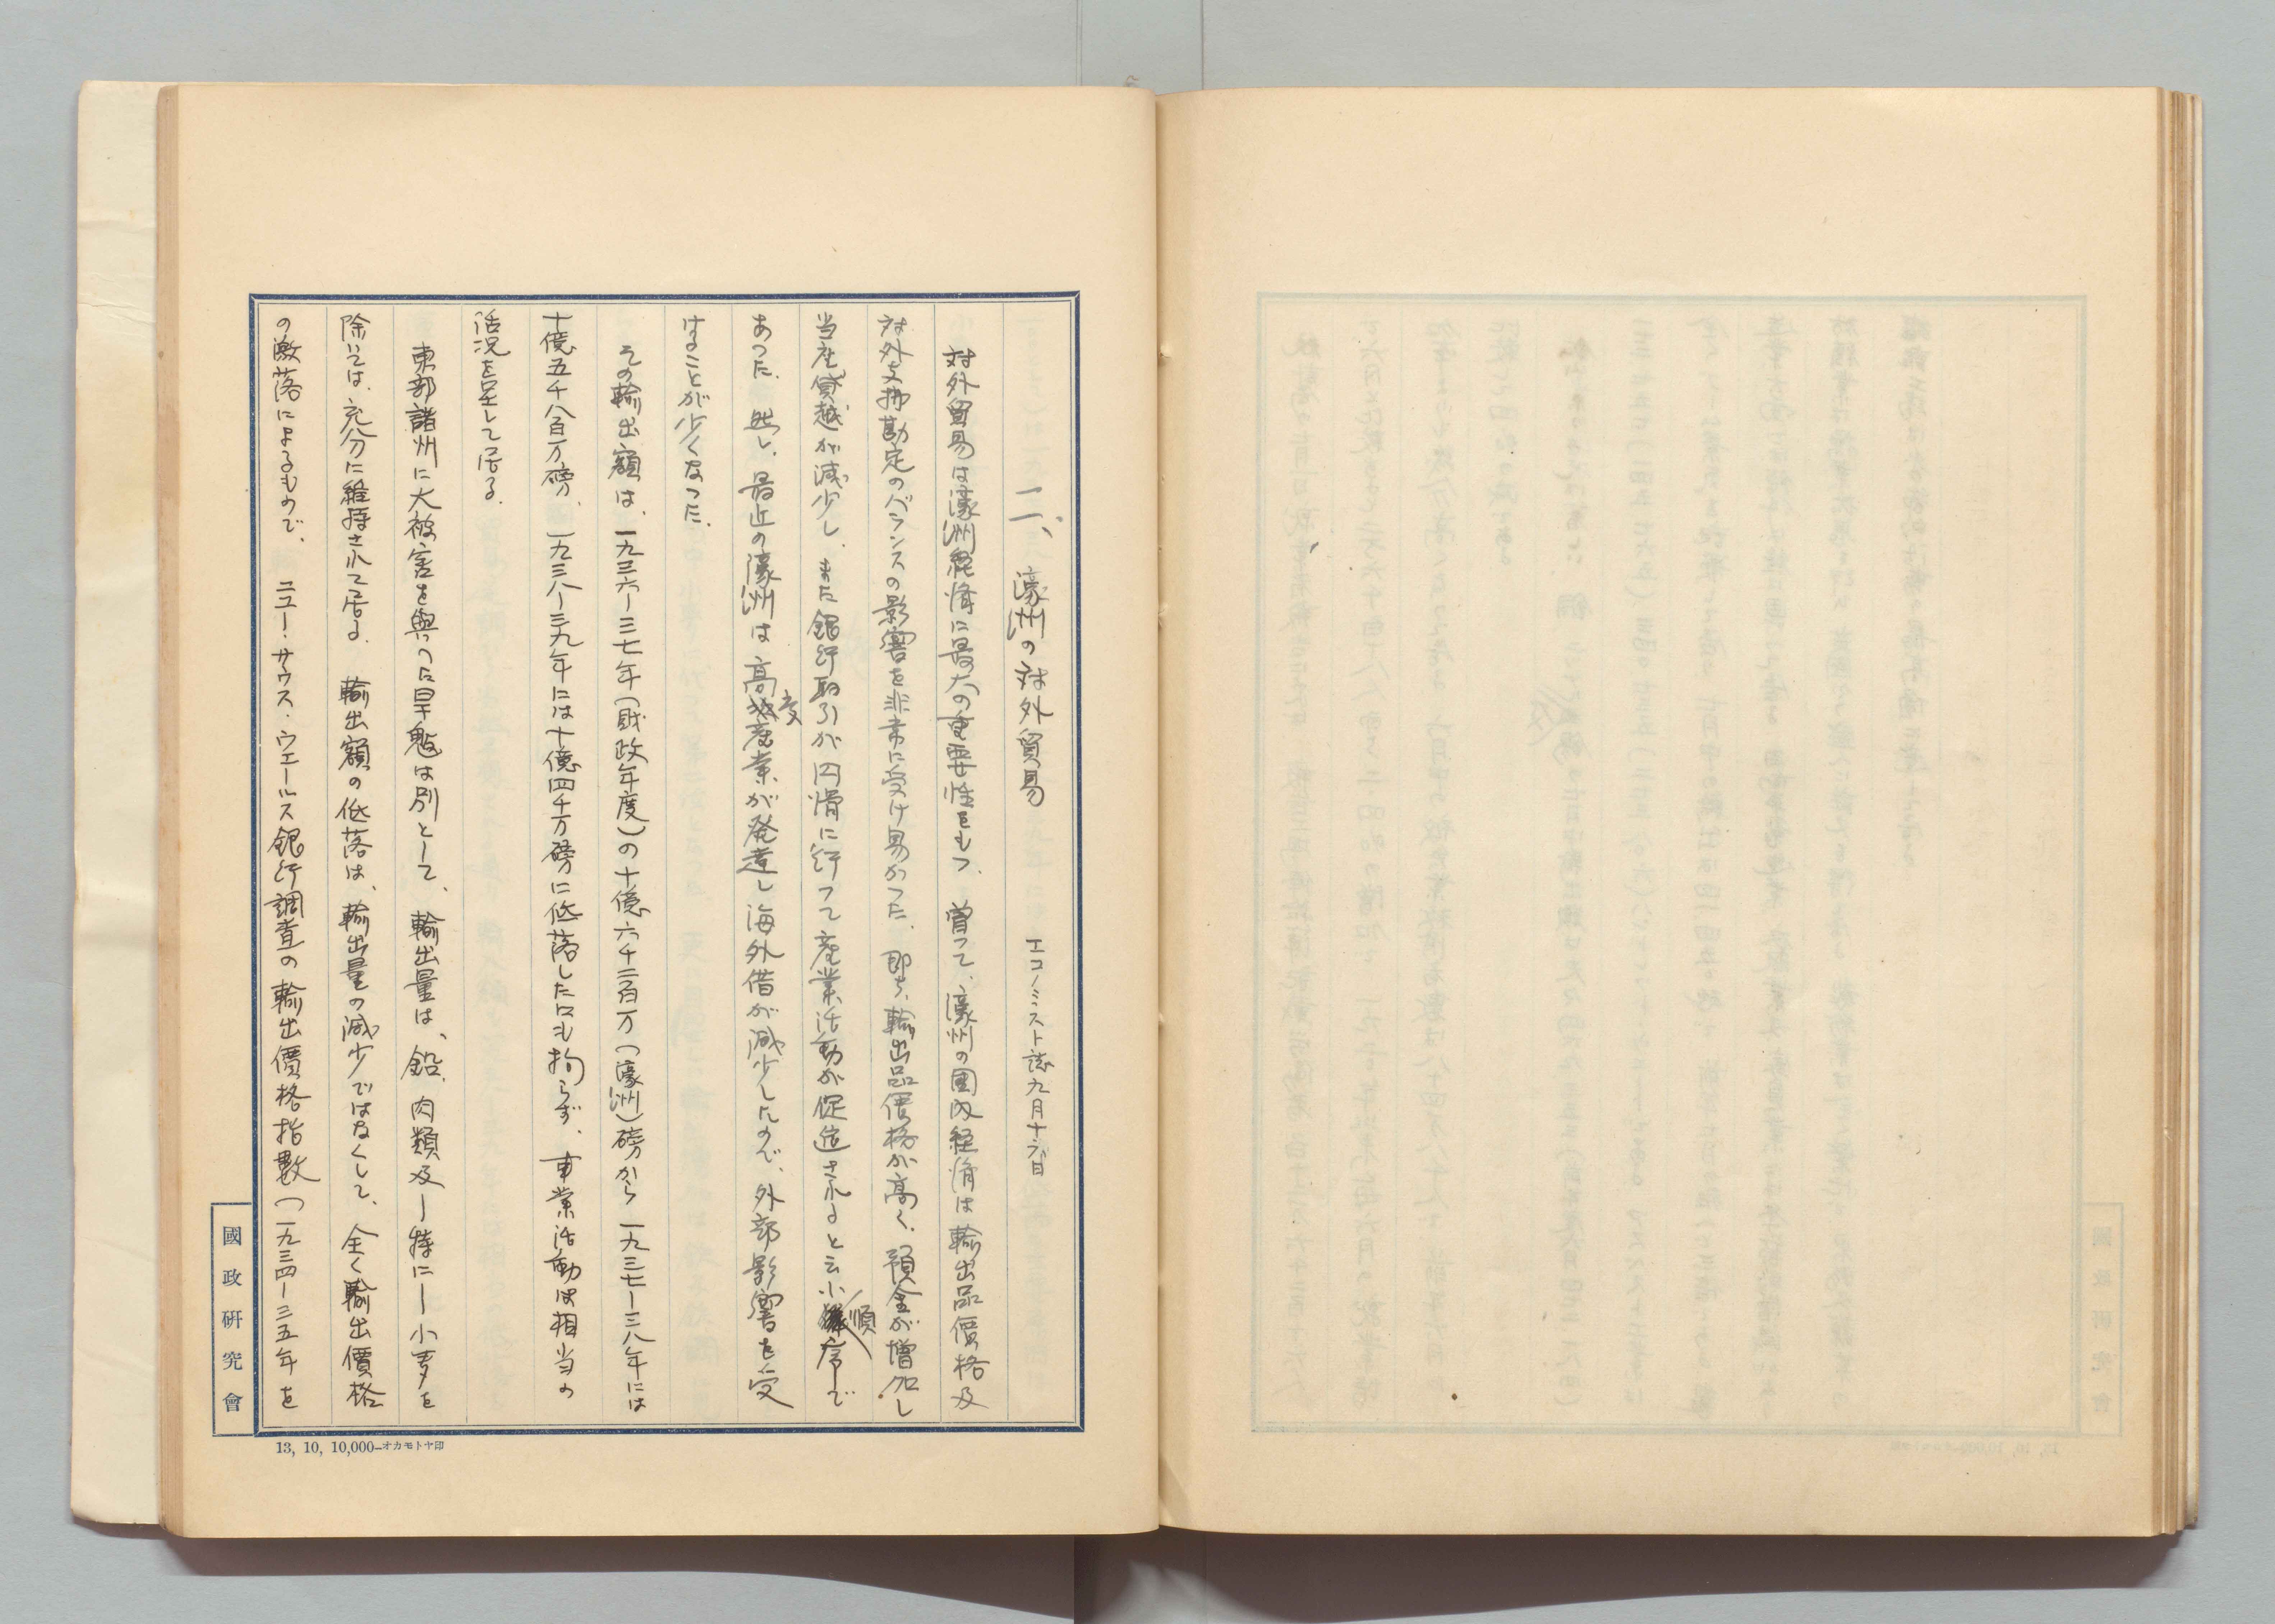 二、濠洲の対外貿易 エコノミスト誌九月十六日
対外貿易は濠洲経済に最大の重要性をもつ、曾つて、濠州の国内経済は輸出品價格及
対外支拂勘定のバランスの影響を非常に受け易かつた、即ち、輸出品價格が高く、預金が増加し
当座貸越が減少し、また銀行取引が円滑に行つて産業活動が促進されると云ふ順序で
あつた、然し、最近の濠洲は高度産業が発達し海外借が減少したので、外部影響を受
けることが少くなつた、
その輸出額は、一九三六ー三七年(財政年度)の十億六千二百万(濠洲)磅から一九三七ー三八年には
十億五千八百万磅、一九三八ー三九年には十億四千万磅に低落したにも拘らず、事業活動は相当の
活況を呈して居る、
東部諸州に大被害を與つた旱魃は別として、輸出量は、鉛、肉類及ー特にー小麦を
除いては、充分に維持されて居る、輸出額の低落は、輸出量の減少ではなくして、全く輸出價格
の激落によるもので、ニュー・サウス・ウエールス銀行調査の輸出價格指数(一九三四ー三五年を
國政研究會
13, 10, 10,000—オカモトヤ印